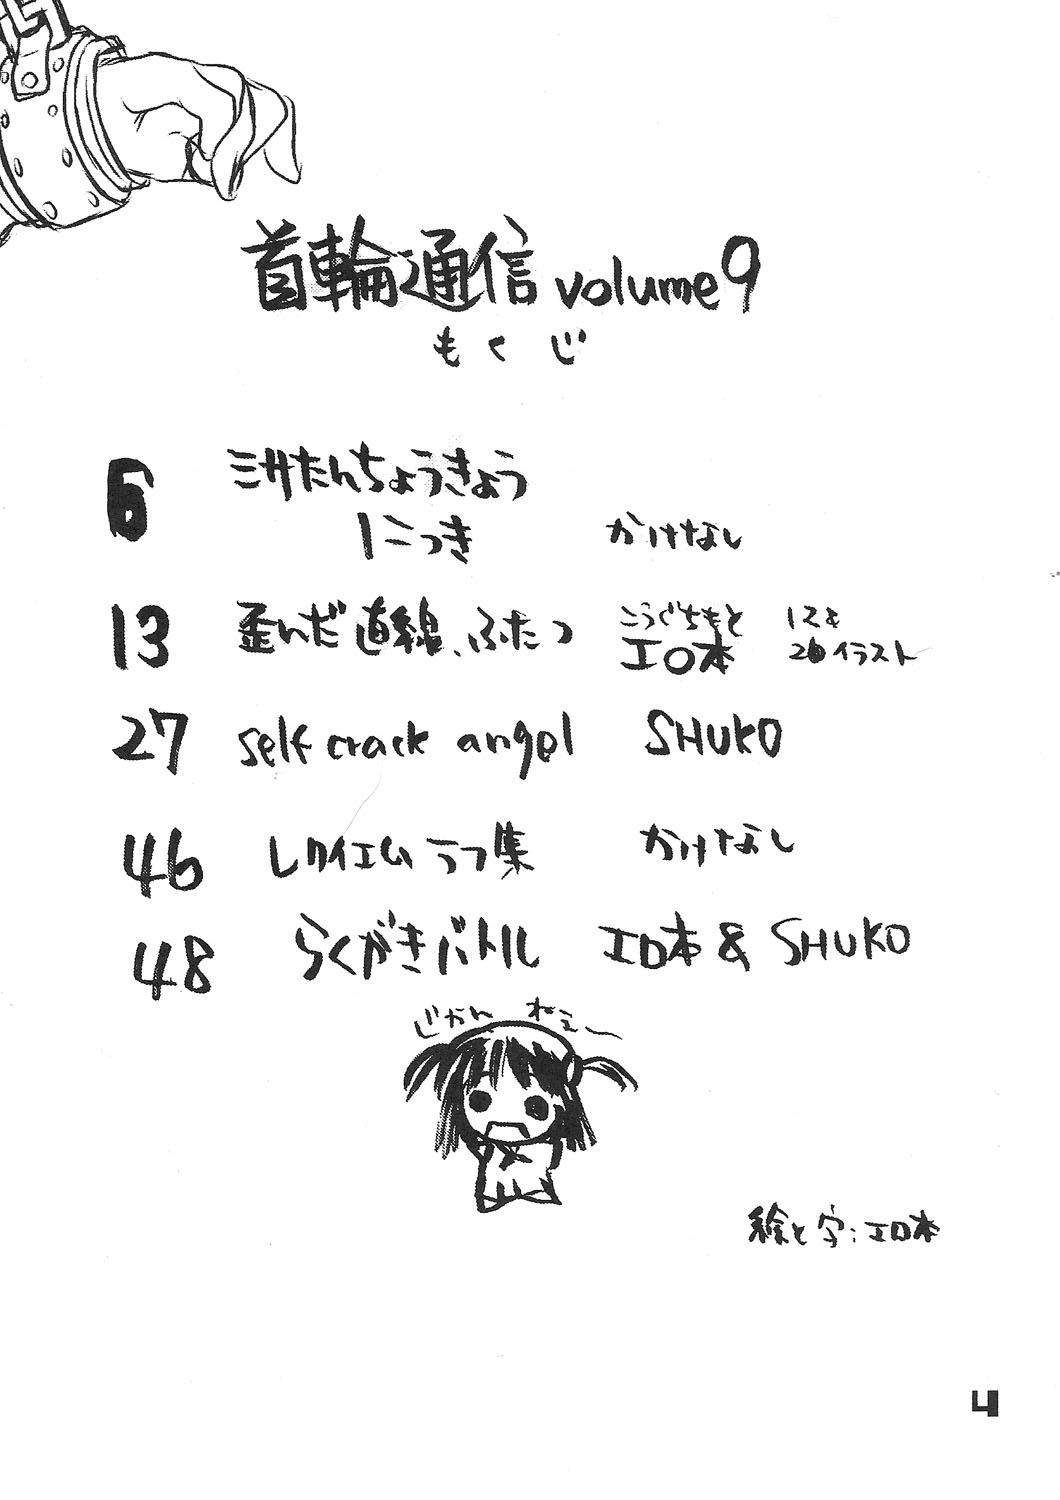 首輪通信 volume9
もくじ
6 三井たんちょうきょう
にっき かけなし
13 歪んだ直線、ふたつ こうぐちもと 12P
エロ本 26イラスト
27 self crack angel SHUKO
46 レクイエムラフ集 かけなし
48 らくがきバトル エロ本 & SHUKO
じかん ねぇ〜
絵と字:エロ本
4